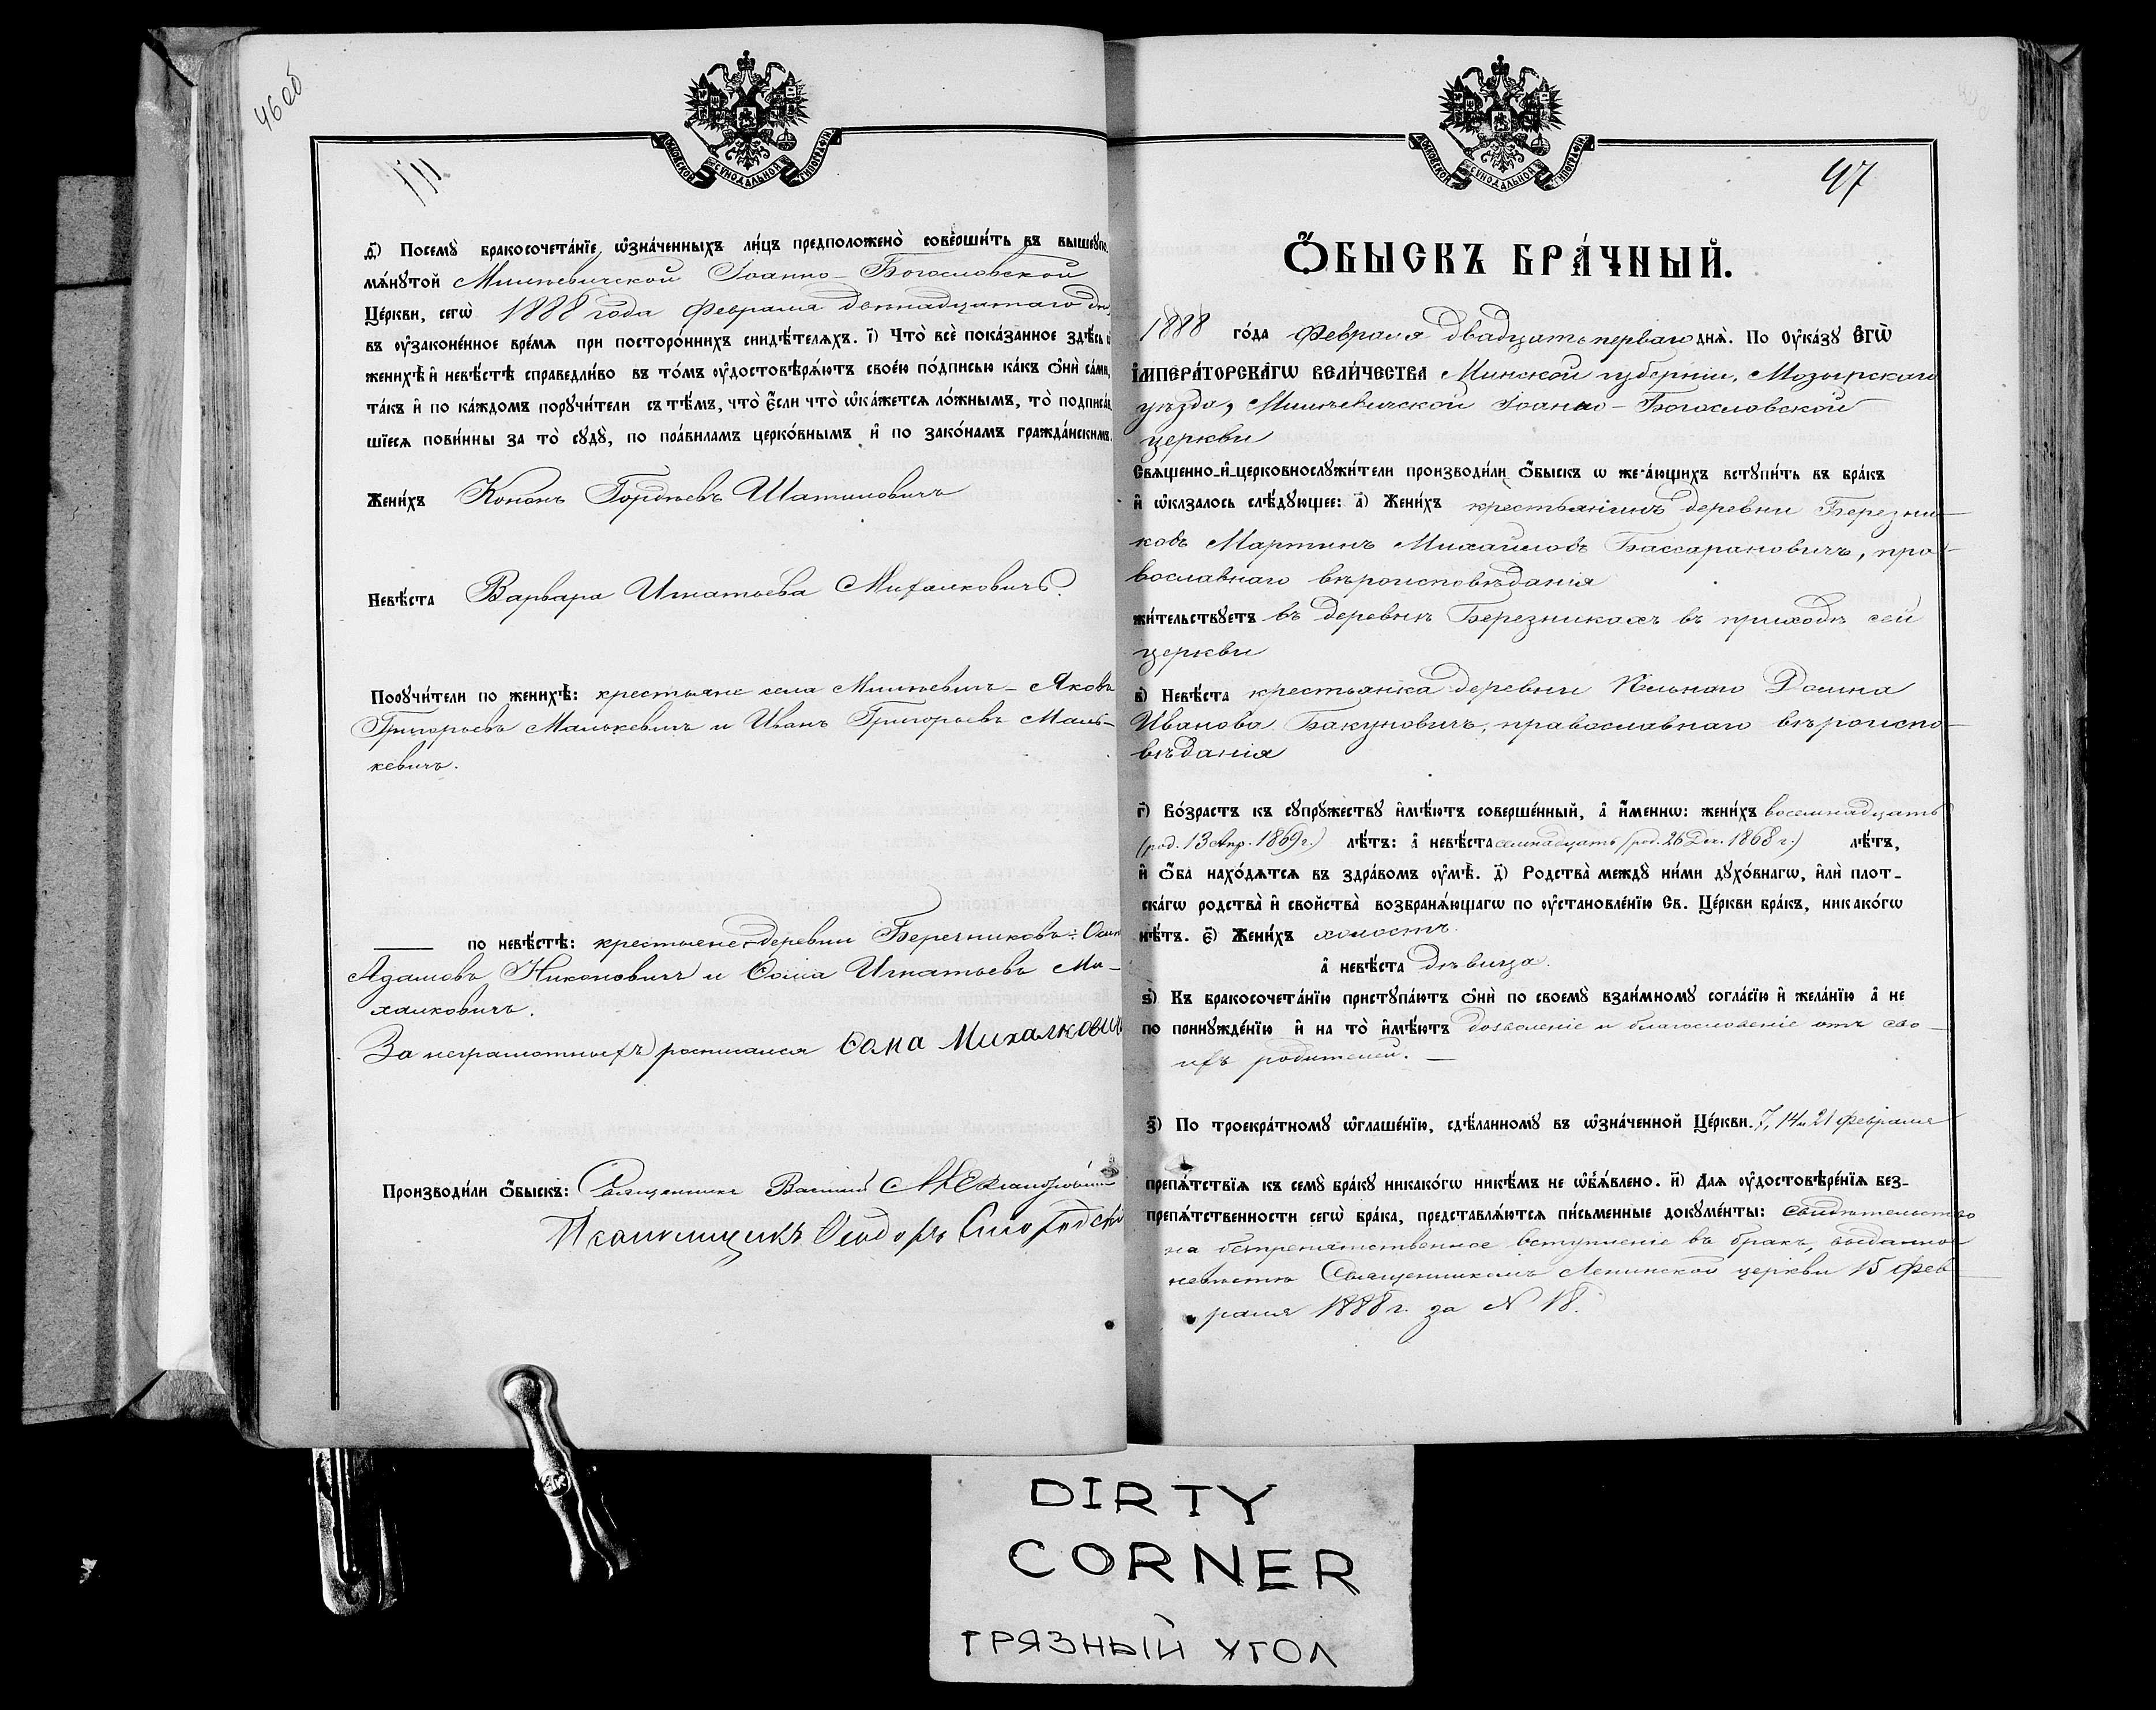 46 об
МОСКОВСКОЙ СѴНОДАЛЬНОЙ ТИПОГРАФІИ
д҃і) Посемꙋ̀ бракосочета́нїе ѡ҆зна́ченныхъ ли́цъ предположено̀ соверши́ть въ вышеꙋпо-
мѧ́нꙋтой Милевичской Іоанно-Богословской
Це́ркви, сегѡ̀ 1888 года Февраля двѣнадцатаго дня
въ ᲂу҆законе́нное вре́мѧ при посторо́ннихъ свидѣ́телѧхъ. і҃) Что̀ всѐ пока́занное здѣ́сь ѡ
женихѣ̀ и҆ невѣ́стѣ справедли́во въ то́мъ ᲂу҆достовѣрѧ́ютъ свое́ю по́дписью ка́къ ѻ҆нѝ са́ми,
та́къ и҆ по ка́ждомъ порꙋчи́тели съ тѣ́мъ, что̀ є҆́сли что̀ ѡ҆ка́жетсѧ ло́жнымъ, то̀ подписа́в-
шїесѧ пови́нны за то̀ сꙋдꙋ̀, по пра́виламъ церко́внымъ и҆ по зако́намъ гражда́нскимъ.
Жени́хъ Кононъ Гордѣевъ Шатиловичъ
Невѣ́ста Варвара Игнатьева Михалковичъ.
Порꙋчи́тели по женихѣ̀: крестьяне села Милевичъ - Яковъ
Григорьевъ Малькевичъ и Иванъ Григорьевъ Маль-
кевичъ.
—— по невѣ́стѣ: крестьяне деревни Березниковъ: Осипъ
Адамовъ Никоновичъ и Ѳома Игнатьевъ Ми-
халковичъ.
За неграмотныхъ росписался Ѳома Михалковичъ
Производи́ли ѻ҆́быскъ: Священникъ Василій
Псаломщикъ Ѳеодоръ
МОСКОВСКОЙ СѴНОДАЛЬНОЙ ТИПОГРАФІИ
47
Ѻ҆́БЫСКЪ БРА́ЧНЫЙ.
1888 го́да Февраля двадцать перваго днѧ̀. По ᲂу҆ка́зꙋ Є҆ГѠ̀
І҆МПЕРА́ТОРСКАГѠ ВЕЛИ́ЧЕСТВА Минской губерніи, Мозырскаго
уѣзда, Милевичской Іоанно-Богословской
церкви
Свѧще́нно-и҆-церковнослꙋжи́тели производи́ли ѻ҆́быскъ ѡ жела́ющихъ встꙋпи́ть въ бра́къ
и҆ ѡ҆казалось слѣ́дꙋющее: а҃) Жени́хъ крестьянинъ деревни Березни-
ковъ Мартинъ Михайловъ Бассарановичъ, пра-
вославнаго вѣроисповѣданія
жи́тельствꙋетъ въ деревнѣ Березникахъ въ приходѣ сей
церкви
в҃) Невѣ́ста крестьянка деревни Домна
Иванова Бакуновичъ, православнаго вѣроиспо-
вѣданія
г҃) Во́зрастъ къ сꙋпрꙋ́жествꙋ и҆мѣ́ютъ соверше́нный, а҆ и҆́меннѡ: жени́хъ восемнадцать
(род. 13 Апр. 1869 г.) лѣ́тъ: а҆ невѣ́ста семнадцать (род. 26 Дек. 1868 г.) лѣ́тъ,
и҆ ѻ҆́ба нахо́дѧтсѧ въ здра́вомъ ᲂу҆мѣ̀. д҃) Родства̀ междꙋ̀ ни́ми дꙋхо́внагѡ, и҆лѝ плот-
ска́гѡ родства̀ и҆ свойства̀ возбранѧ́ющагѡ по ᲂу҆становле́нїю Св. Це́ркви бра́къ, никако́гѡ
нѣ́тъ. є҃) Жени́хъ холостъ.
а҆ невѣ́ста дѣвица.
ѕ҃) Къ бракосочета́нїю пристꙋпа́ютъ ѻ҆нѝ по своемꙋ̀ взаи́мномꙋ согла́сїю и҆ жела́нїю а҆ не
по принꙋжде́нїю и҆ на то̀ и҆мѣ́ютъ дозволеніе и благословеніе отъ сво-
ихъ родителей. —
з҃) По троекра́тномꙋ ѡ҆глаше́нїю, сдѣ́ланномꙋ въ ѡ҆зна́ченной Це́ркви. 7, 14 и 21 Февраля
препѧ́тствїѧ къ семꙋ̀ бра́кꙋ никако́гѡ никѣ́мъ не ѡ҆б̾ѧ́влено. и҃) Длѧ ᲂу҆достовѣре́нїѧ без-
препѧ́тственности сегѡ̀ бра́ка, представлѧ́ютсѧ пи́сьменные докꙋме́нты: свидѣтельство
на безпрепятственное вступленіе въ бракъ, выданное
невѣстѣ Священникомъ Ленинской церкви 15 Фев-
раля 1888 г. за N 18.
DIRTY
CORNER
ГРЯЗНЫЙ УГОЛ